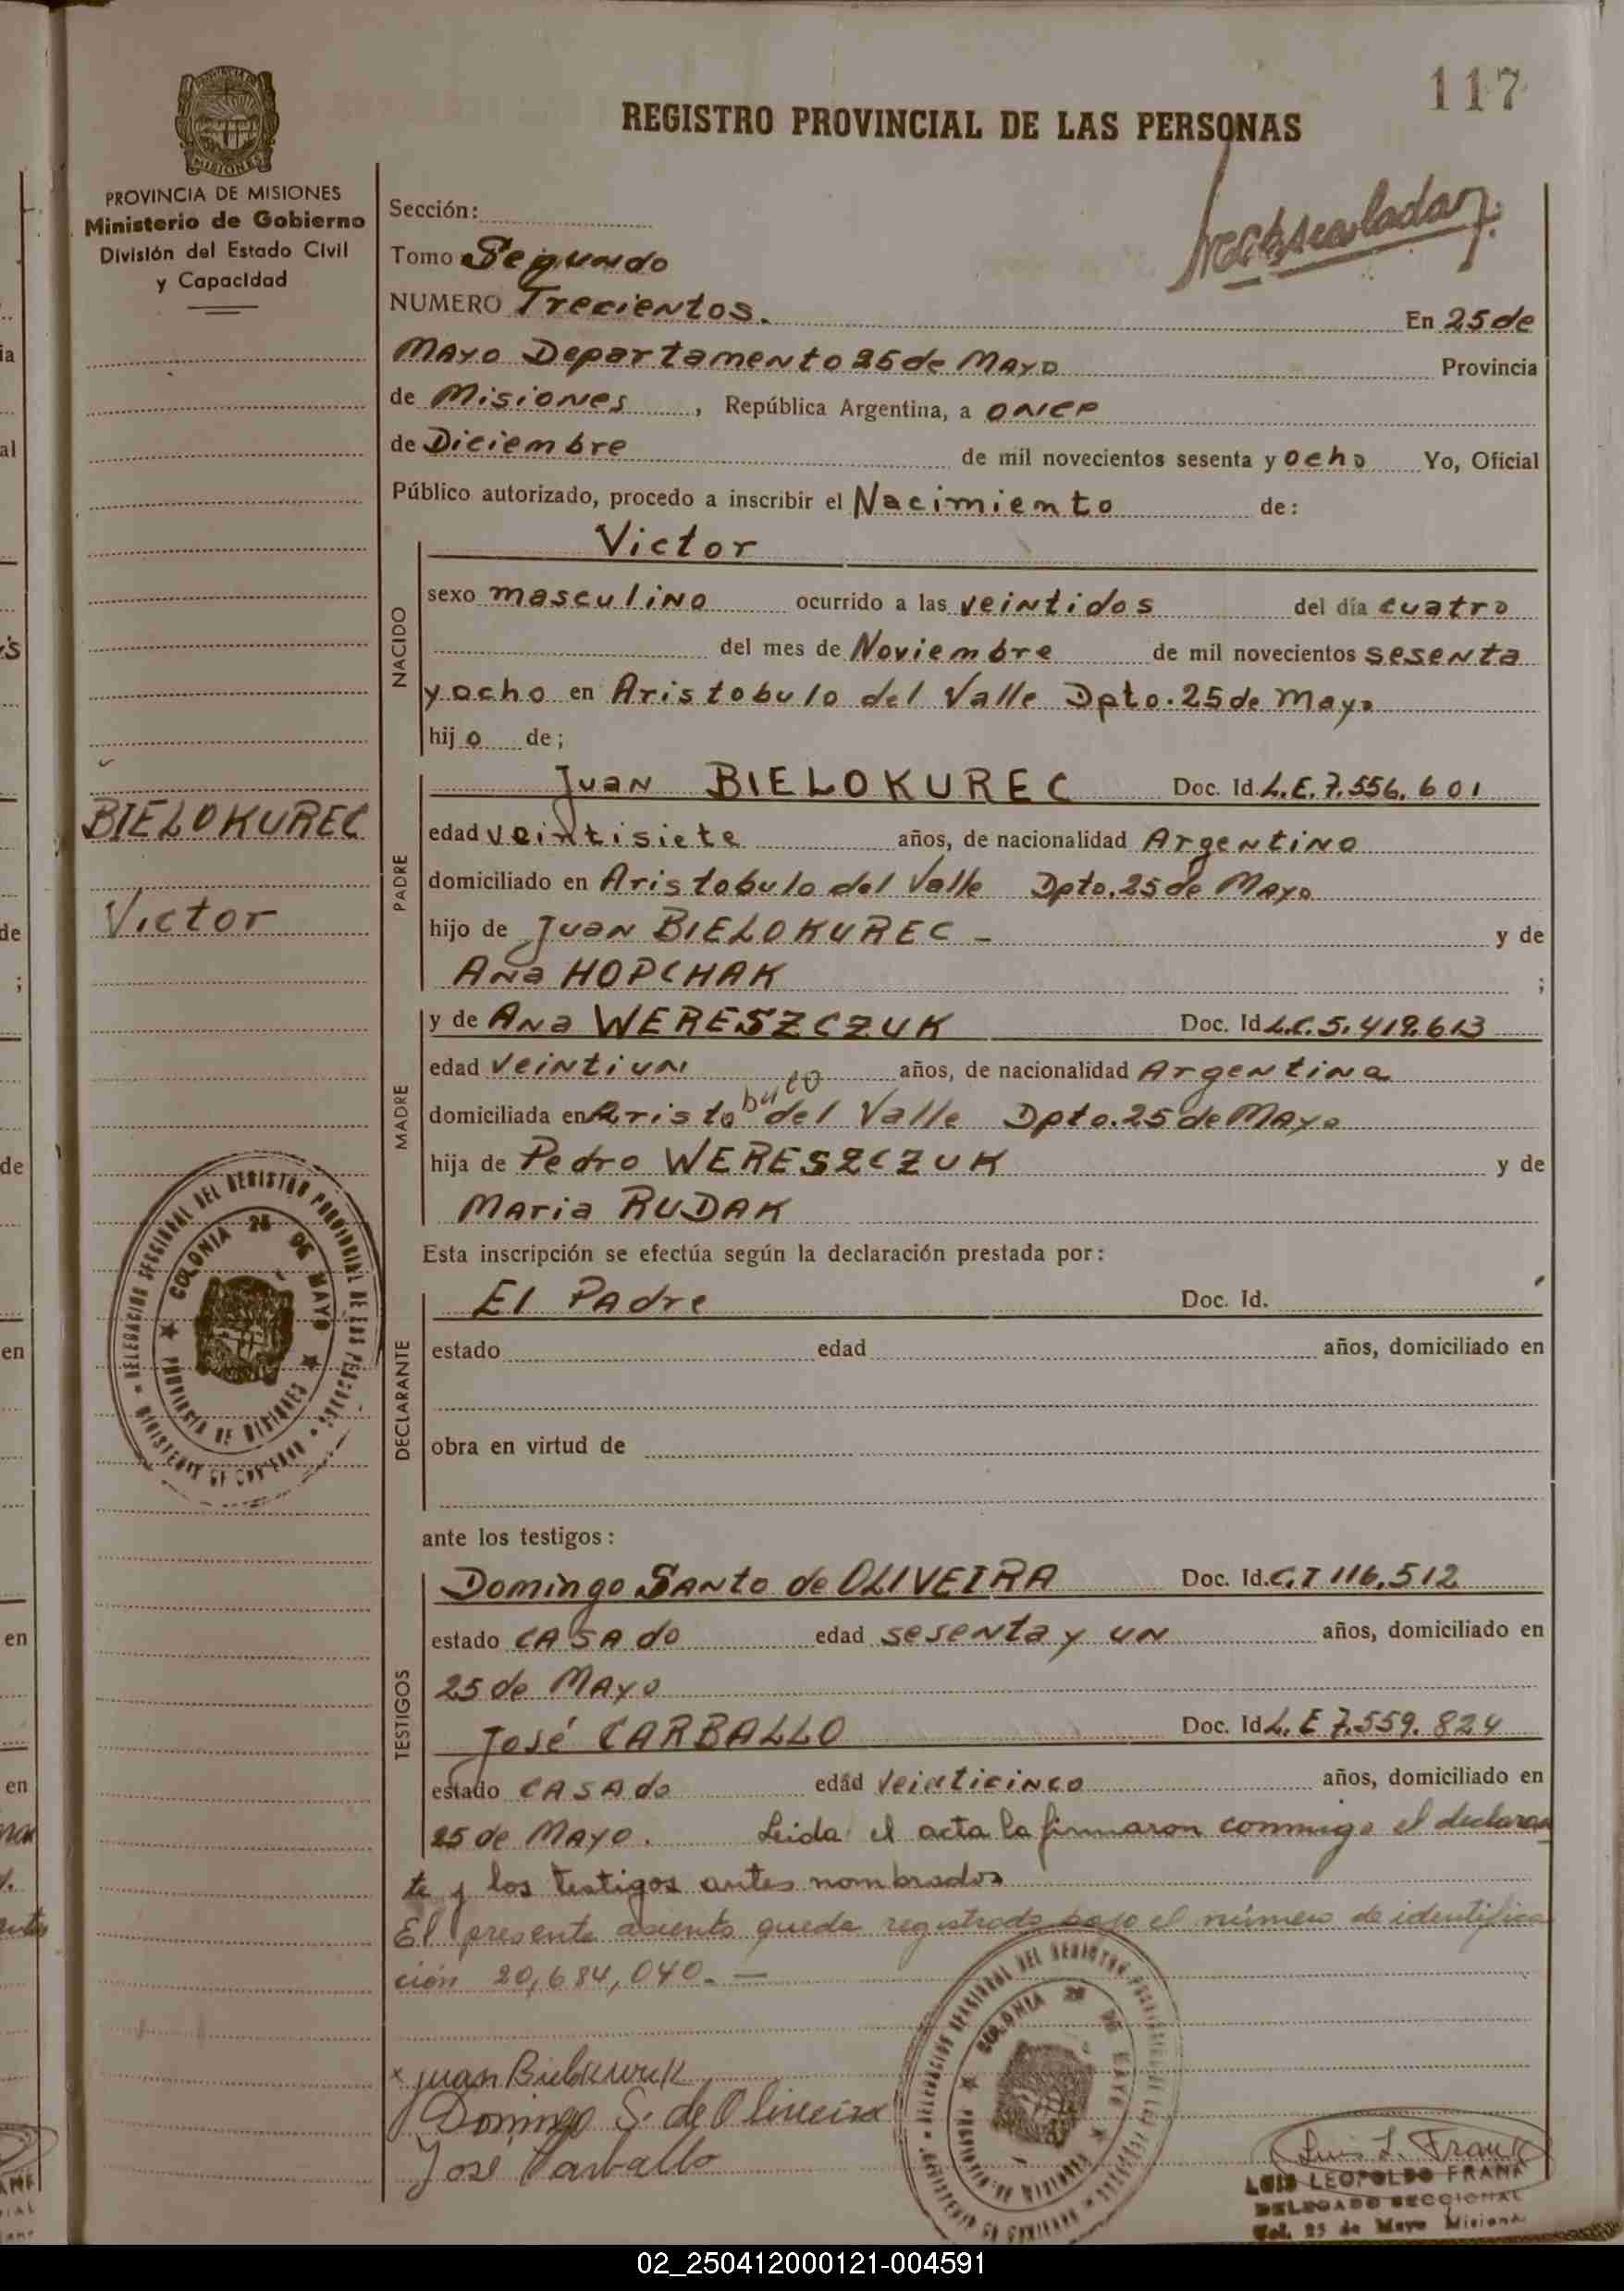 117
REGISTRO PROVINCIAL DE LAS PERSONAS
MISIONES
PROVINCIA DE MISIONES
Ministerio de Gobierno
División del Estado Civil
y Capacidad
Sección:
Tomo Segundo
NUMERO Trecientos. En 25 de
Mayo Departamento 25 de Mayo Provincia
de Misiones, República Argentina, a once
de Diciembre de mil novecientos sesenta y ocho Yo, Oficial
Público autorizado, procedo a inscribir el Nacimiento de:
Victor
NACIDO
sexo masculino ocurrido a las veintidos del día cuatro
del mes de Noviembre de mil novecientos sesenta
y ocho en Aristobulo del Valle Dpto. 25 de Mayo
hijo de;
Juan BIELOKUREC Doc. Id. L.E. 7.556.601
BIELOKUREC
Victor
PADRE
edad veintisiete años, de nacionalidad Argentino
domiciliado en Aristobulo del Valle Dpto. 25 de Mayo
hijo de Juan BIELOKUREC - y de
Ana HOPCHAK ;
y de Ana WERESZCZUK Doc. Id L.C. 5.419.613
MADRE
edad veintiun años, de nacionalidad Argentina
domiciliada en Aristobulo del Valle Dpto. 25 de Mayo
hija de Pedro WERESZCZUK y de
Maria RUDAK
Esta inscripción se efectúa según la declaración prestada por:
DECLARANTE
El Padre Doc. Id.
estado edad años, domiciliado en
obra en virtud de
DELEGACION SECCIONAL DEL REGISTRO PROVINCIAL DE LAS PERSONAS
MINISTERIO DE GOBIERNO
COLONIA 25 DE MAYO
PROVINCIA DE MISIONES
ante los testigos:
TESTIGOS
Domingo Santo de OLIVEIRA Doc. Id. C.I 116.512
estado CASADO edad sesenta y un años, domiciliado en
25 de Mayo
José CARBALLO Doc. Id L.E 7.559.824
estado CASADO edad veinticinco años, domiciliado en
25 de Mayo. Leida el acta la firmaron conmigo el declaran
te y los testigos antes nombrados
El presente asiento queda registrado bajo el número de identifica
ción 20,684,040. —
x Juan
Domingo S. de Oliveira
José Carballo
DELEGACION SECCIONAL DEL REGISTRO PROVINCIAL DE LAS PERSONAS
COLONIA 25 DE MAYO
Luis L. Frank
LUIS LEOPOLDO FRANK
DELEGADO SECCIONAL
Col. 25 de Mayo Misiones
02_250412000121-004591